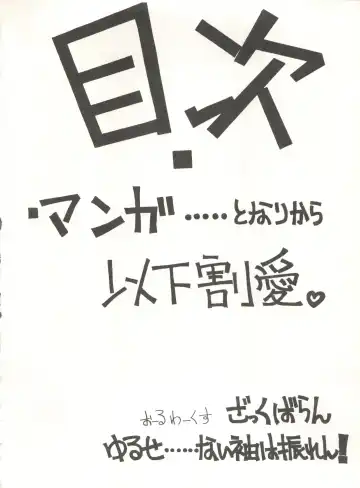 目次
・マンガ……となりから
以下割愛。♡
おーるわーくす ざっくばらん
ゆるせ……ない袖は振れん!